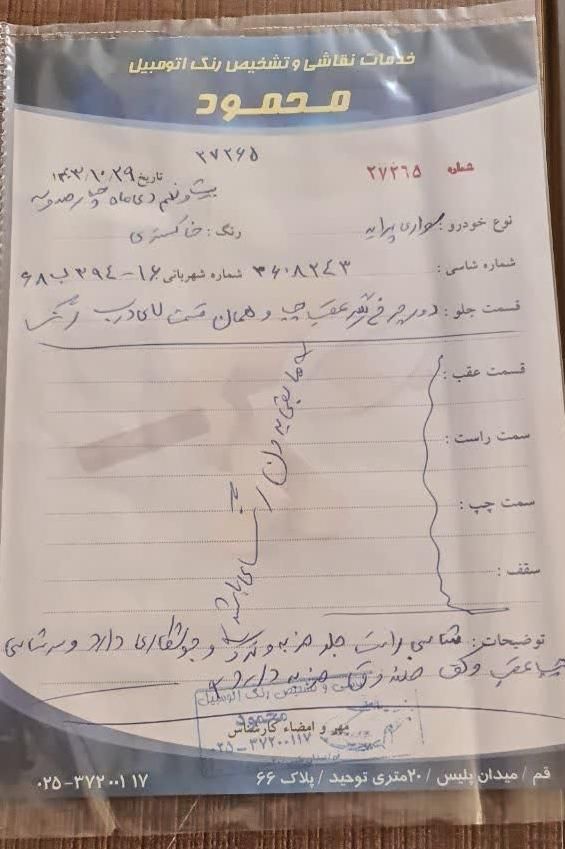 خدمات نقاشی و تشخیص رنگ اتومبیل
محمود
۲۷۲۶۵
شماره ۲۷۲۶۵
تاریخ ۱۴۰۳/۱۰/۲۹
بیست و نهم دی ماه چهارصد و سه
نوع خودرو : سواری پراید رنگ : خاکستری
شماره شاسی : ۳۶۰۸۲۴۳ شماره شهربانی ۱۶-۳۹۴ب۶۸
قسمت جلو : دور چرخ گلگیر عقب چپ و همان قسمت لای درب رنگ
قسمت عقب :
سمت راست :
سمت چپ :
سقف :
مابقی بدون رنگ می باشد
توضیحات : شاسی راست جلو ضربه و جوشکاری دارد و سرشاسی
چپ عقب و کف صندوق ضربه دارد
و تشخیص رنگ اتومبیل
محمود
مهر و امضاء کارشناس
۰۲۵-۳۷۲۰۰۱۱۷
قم / میدان پلیس / ۲۰متری توحید / پلاک ۶۶ ۰۲۵-۳۷۲۰۰۱۱۷